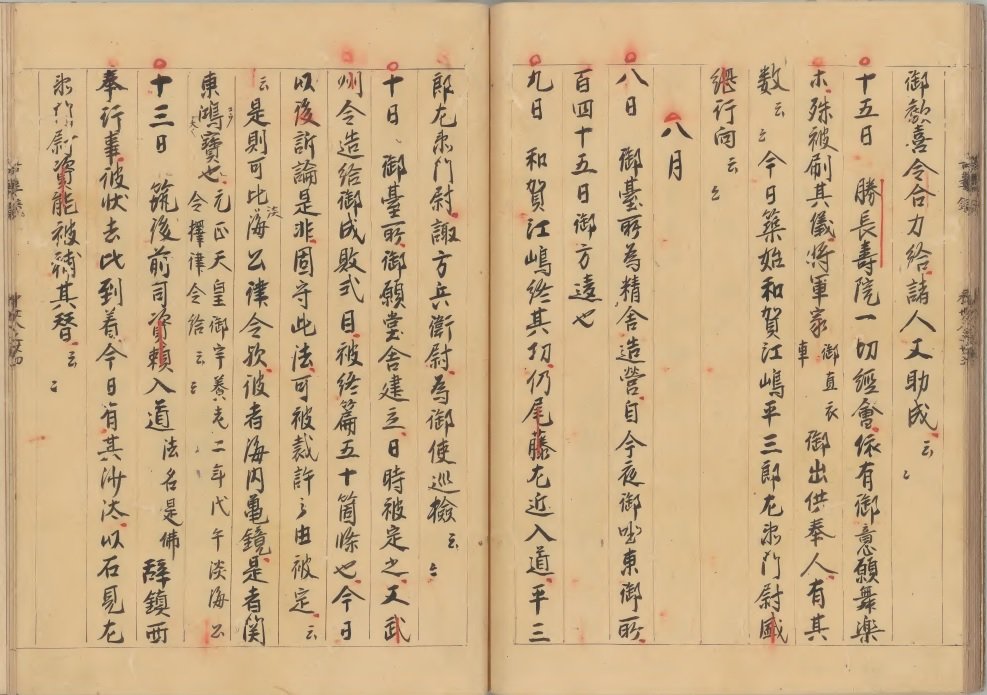 御歓喜令合力給諸人又助成云〻
十五日 勝長壽院一切經會依有御意願舞樂
以殊被刷其儀将軍家御直衣御車御出供奉人有其
数云〻今日築始和賀江嶋平三郎左衛門尉盛
綱行向云〻
八月
八日 御臺所為精舎造營自今夜御坐東御所
百四十五日御方違也
九日 和賀江嶋終其功仍尾藤左近入道平三
郎左衛門尉諏方兵衛尉為御使巡檢云〻
十日 御臺所御願堂舎建立日時被定之又武
州令造給御成敗式目被終篇五十箇條也今日
以後訴論是非固守此法可被裁許之由被定云
云是則可比淡海公律令歟彼者海内亀鏡是者関
東鴻寶也元正天皇御宇養老二年戊午淡海公令擇律令給云〻
十三日 筑後前司資頼入道法名是佛辞鎮西
奉行事被状去比到着今日有其沙汰以石見左
衛門尉資能被補其替云〻